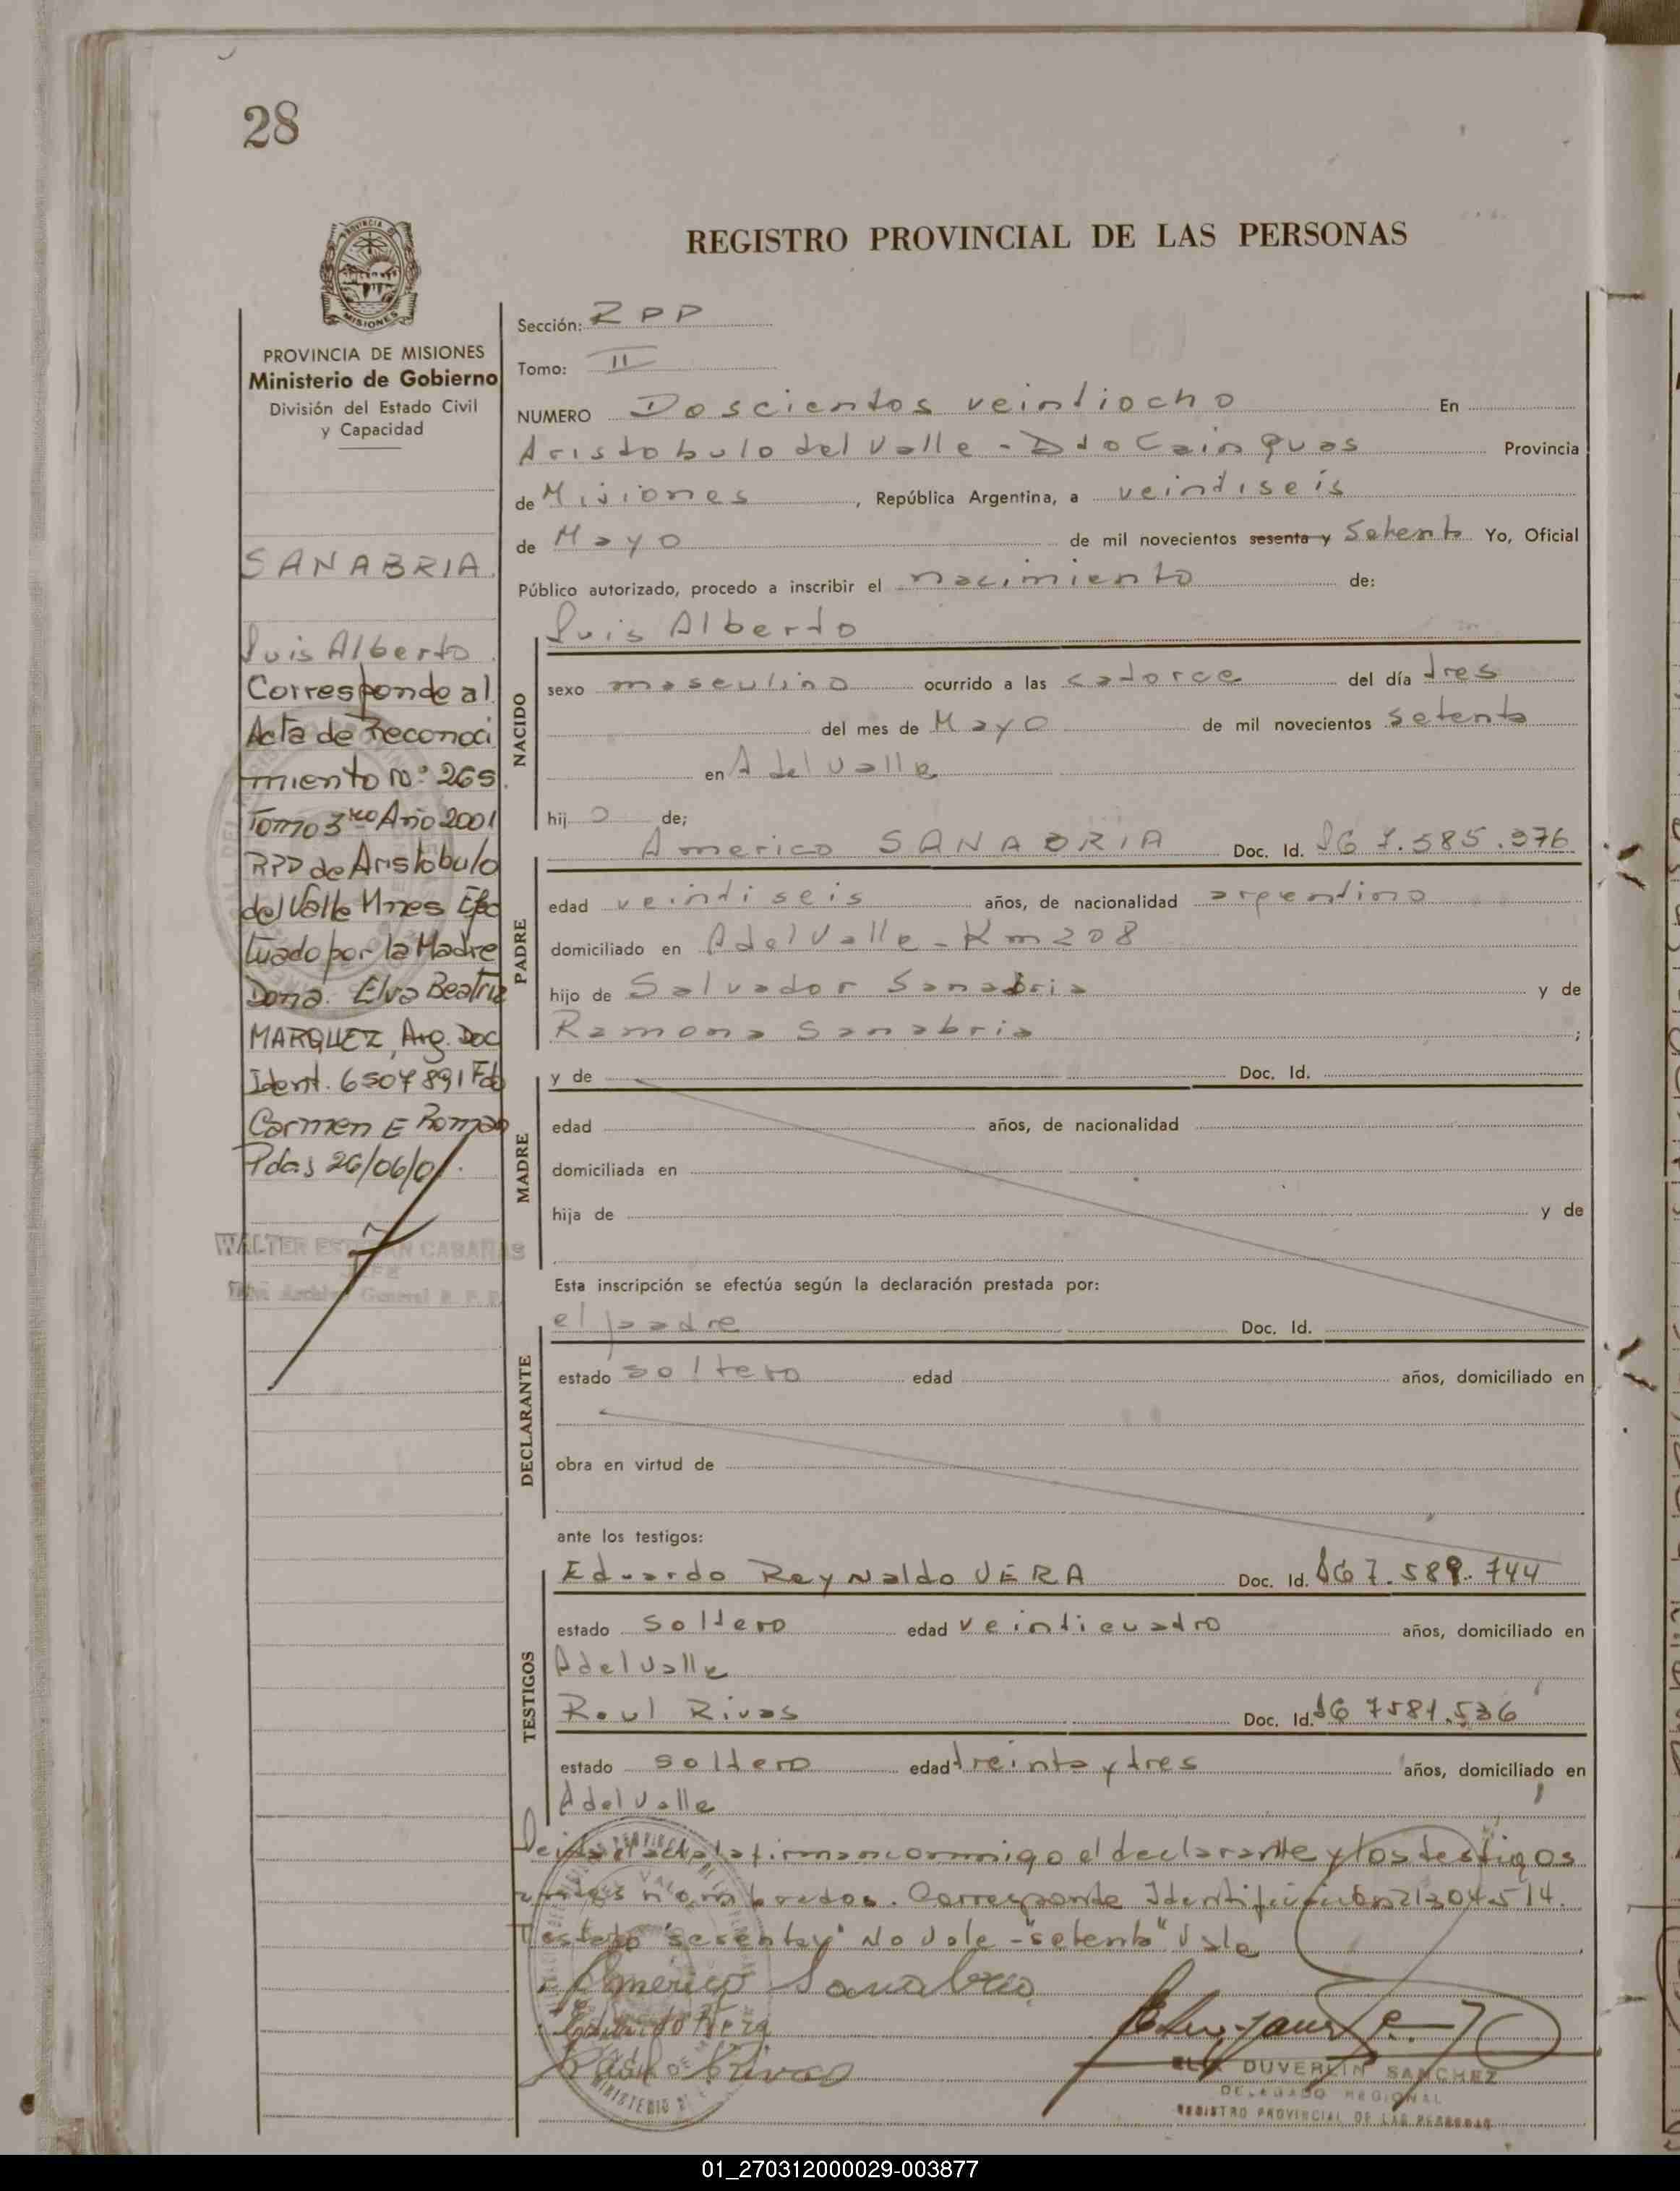 28
PROVINCIA DE
MISIONES
PROVINCIA DE MISIONES
Ministerio de Gobierno
División del Estado Civil
y Capacidad
SANABRIA
Luis Alberto
Corresponde al
Acta de Reconoci
miento No: 265
Tomo 3ro Año 2001
RPP de Aristobulo
del Valle Mnes Efec
tuado por la Madre
Dona. Elva Beatriz
MARQUEZ, Arg. Doc
Ident. 6507891 Fdo
Carmen E Roman
Pdas 26/06/01.
WALTER ESTEBAN CABAÑAS
JEFE
Archivo General R. P. P.
REGISTRO PROVINCIAL DE LAS PERSONAS
Sección: RPP
Tomo: II
NUMERO Doscientos veintiocho En
Aristobulo del Valle - Dto Cainguas Provincia
de Misiones, República Argentina, a veintiseis
de Mayo de mil novecientos sesenta y Setenta Yo, Oficial
Público autorizado, procedo a inscribir el nacimiento de:
Luis Alberto
NACIDO
sexo masculino ocurrido a las catorce del día tres
del mes de Mayo de mil novecientos setenta
en A del Valle
hijo de;
Americo SANABRIA Doc. Id. 7.585.376
PADRE
edad veintiseis años, de nacionalidad argentino
domiciliado en A del Valle - Km 208
hijo de Salvador Sanabria y de
Ramona Sanabria ;
y de Doc. Id.
MADRE
edad años, de nacionalidad
domiciliada en
hija de y de
Esta inscripción se efectúa según la declaración prestada por:
el padre Doc. Id.
DECLARANTE
estado soltero edad años, domiciliado en
obra en virtud de
ante los testigos:
Eduardo Reynaldo VERA Doc. Id. 7.589.744
TESTIGOS
estado soltero edad veinticuatro años, domiciliado en
A del Valle
Raul Rivas Doc. Id. 7581.536
estado soltero edad treinta y tres años, domiciliado en
A del Valle
Leida el acta la firman conmigo el declarante y los testigos
antes nombrados. Corresponde Identificación 21304514.
Testado "sesenta y" No Vale - "setenta" Vale
Americo Sanabria
Eduardo Vera
Raul Rivas
ELY DUVERLIN SANCHEZ
DELEGADO REGIONAL
REGISTRO PROVINCIAL DE LAS PERSONAS
01_270312000029-003877